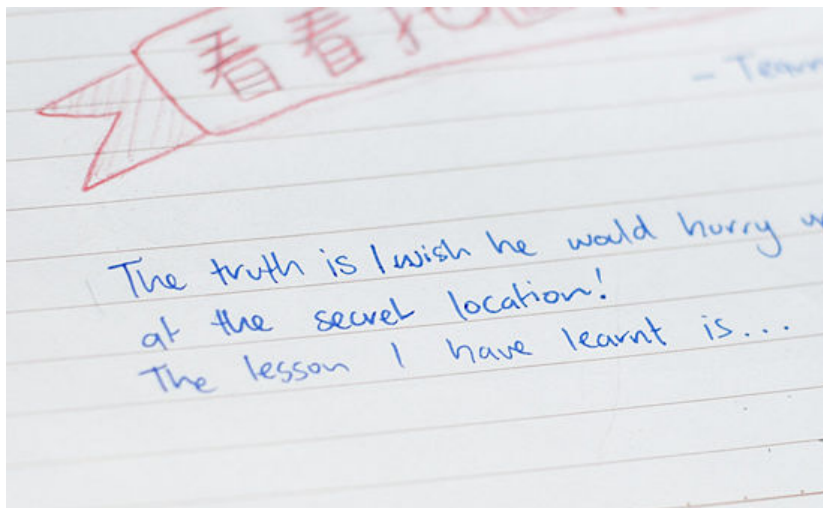 看看地
The truth is I wish he would hurry
at the secret location!
The lesson I have learnt is...